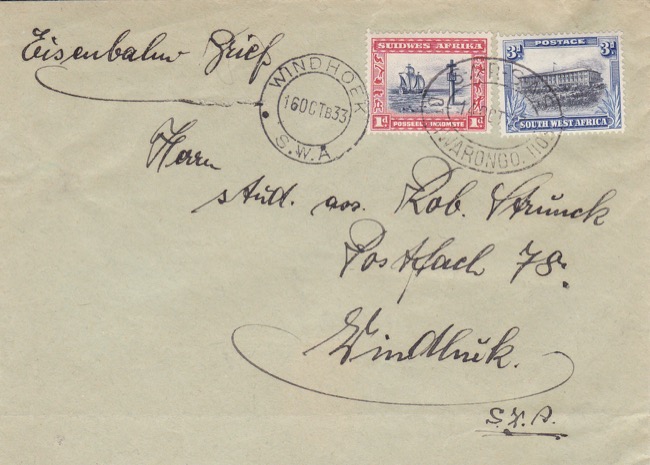 Eisenbahn Brief
WINDHOEK
16 OCT B 33
S.W.A
SUIDWES AFRIKA
1d 1d
POSSEEL-INKOMSTE
3d POSTAGE 3d
SOUTH WEST AFRICA
OCT
Herrn
stud. Rob. Strunck
Postfach 78.
Windhuk.
S.W.A.